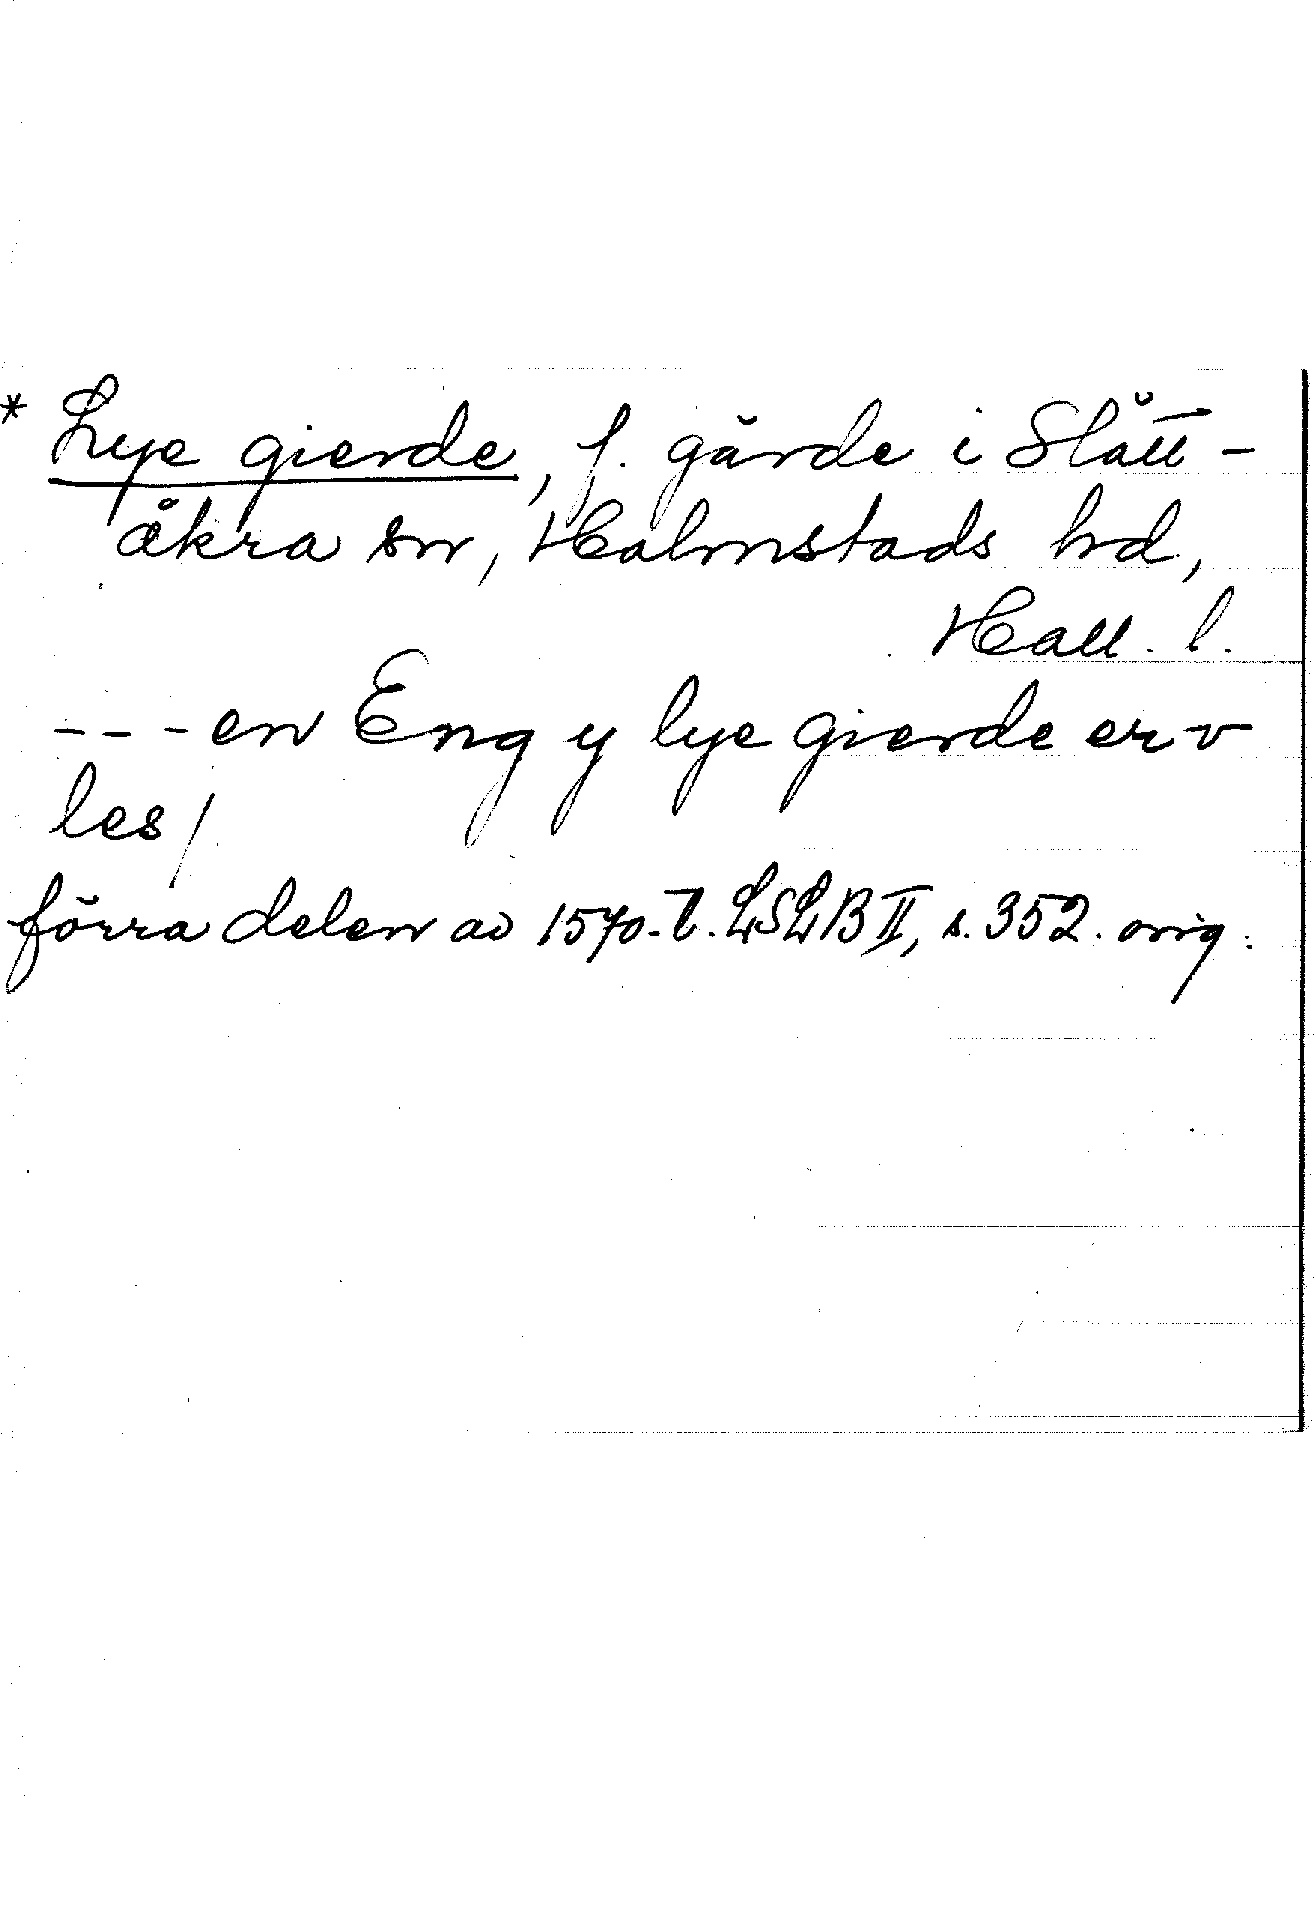 * Lye gierde, f. gärde i Slätt-
åkra sn, Halmstads hd,
Hall. l.
--- en Eng y lye gierde er v
les/
förra delen av 1570-t. LSLB II, s. 352. orig.